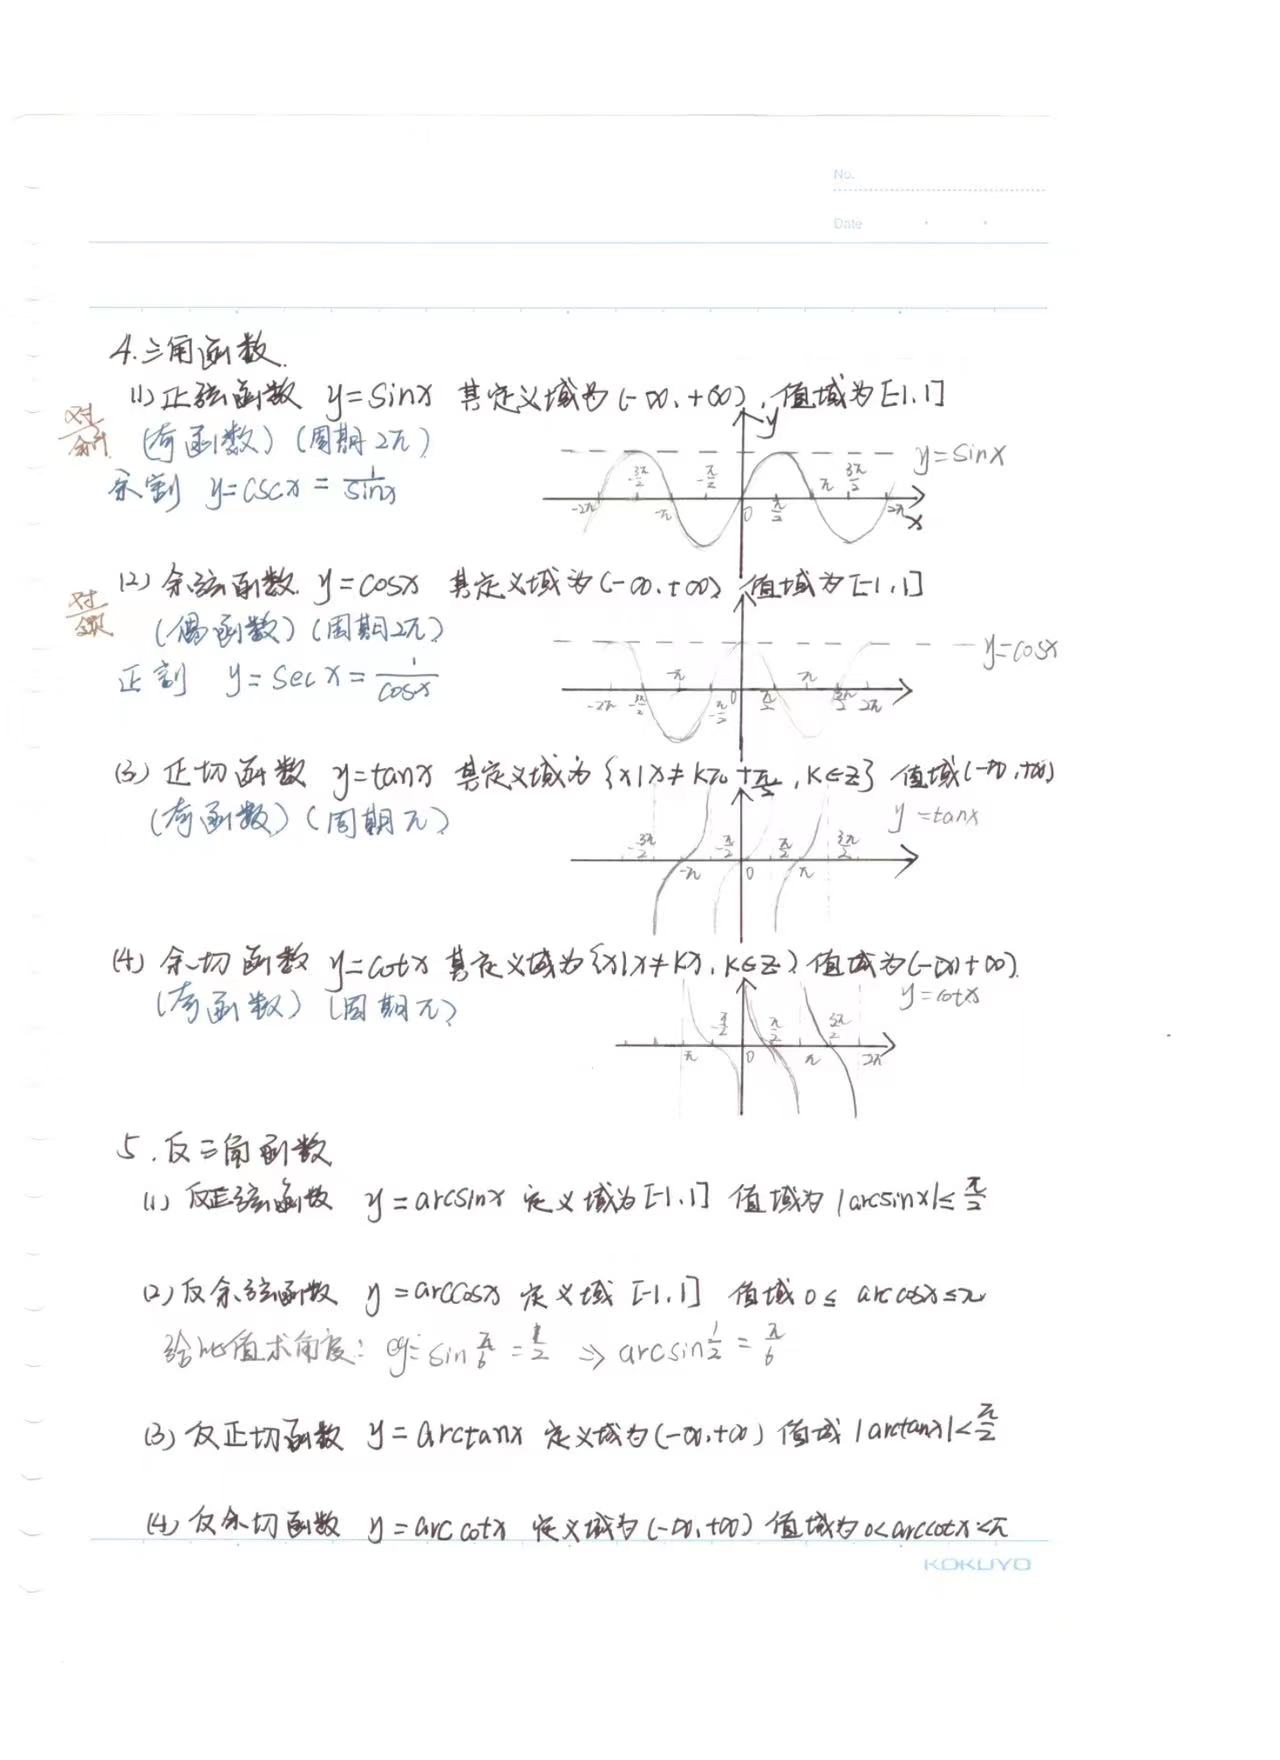 No.
Date
4.三角函数.
(1) 正弦函数 y=sinx 其定义域为(-∞,+∞),值域为[-1,1]
对/斜
(奇函数)(周期2π)
y
y=sinx
-2π -3π/2 -π -π/2 0 π/2 π 3π/2 2π x
余割 y=cscx=1/sinx
(2) 余弦函数. y=cosx 其定义域为(-∞,+∞) 值域为[-1,1]
(偶函数)(周期2π)
y=cosx
-2π -3π/2 -π -π/2 0 π/2 π 3π/2 2π
正割 y=secx=1/cosx
(3) 正切函数 y=tanx 其定义域为{x|x≠kπ+π/2,k∈Z} 值域(-∞,+∞)
(奇函数)(周期π)
y=tanx
-3π/2 -π -π/2 0 π/2 π 3π/2
(4) 余切函数 y=cotx 其定义域为{x|x≠kπ,k∈Z} 值域为(-∞,+∞)
(奇函数)(周期π)
y=cotx
π -π/2 0 π/2 π 3π/2 2π
5.反三角函数
(1) 反正弦函数 y=arcsinx 定义域为[-1,1] 值域为|arcsinx|≤π/2
(2) 反余弦函数 y=arccosx 定义域[-1,1] 值域0≤arccosx≤π
给比值求角度: eg: sinπ/6=1/2 ⇒ arcsin1/2=π/6
(3) 反正切函数 y=arctanx 定义域为(-∞,+∞) 值域|arctanx|<π/2
(4) 反余切函数 y=arccotx 定义域为(-∞,+∞) 值域为0<arccotx<π
KOKUYO